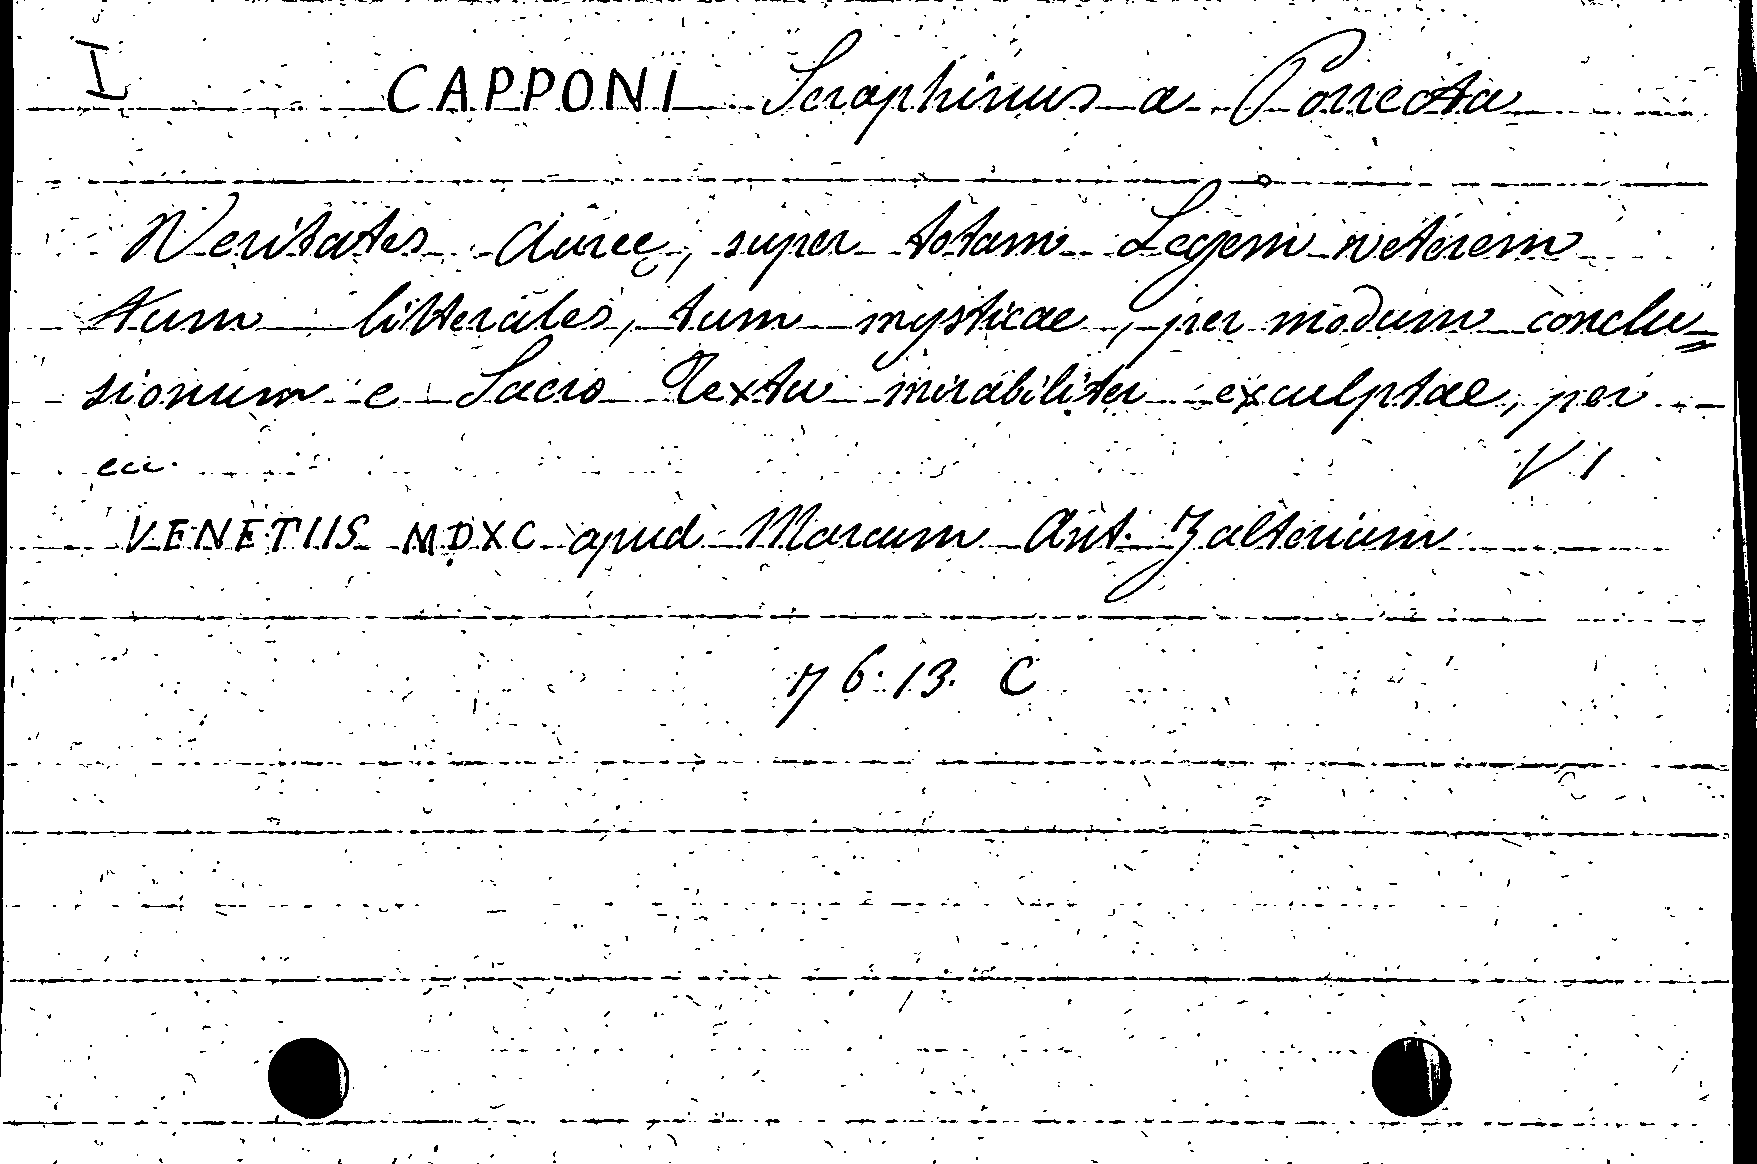 I CAPPONI Seraphinus a Porrecta
Veritates Aureę, super totam Legem veterem
tum litterales, tum mysticae, per modum conclu=
sionum e Sacro Textu mirabiliter exculptae, per
ecc. V 1
VENETIIS MDXC apud Marcum Ant. Zalterium
76.13. C